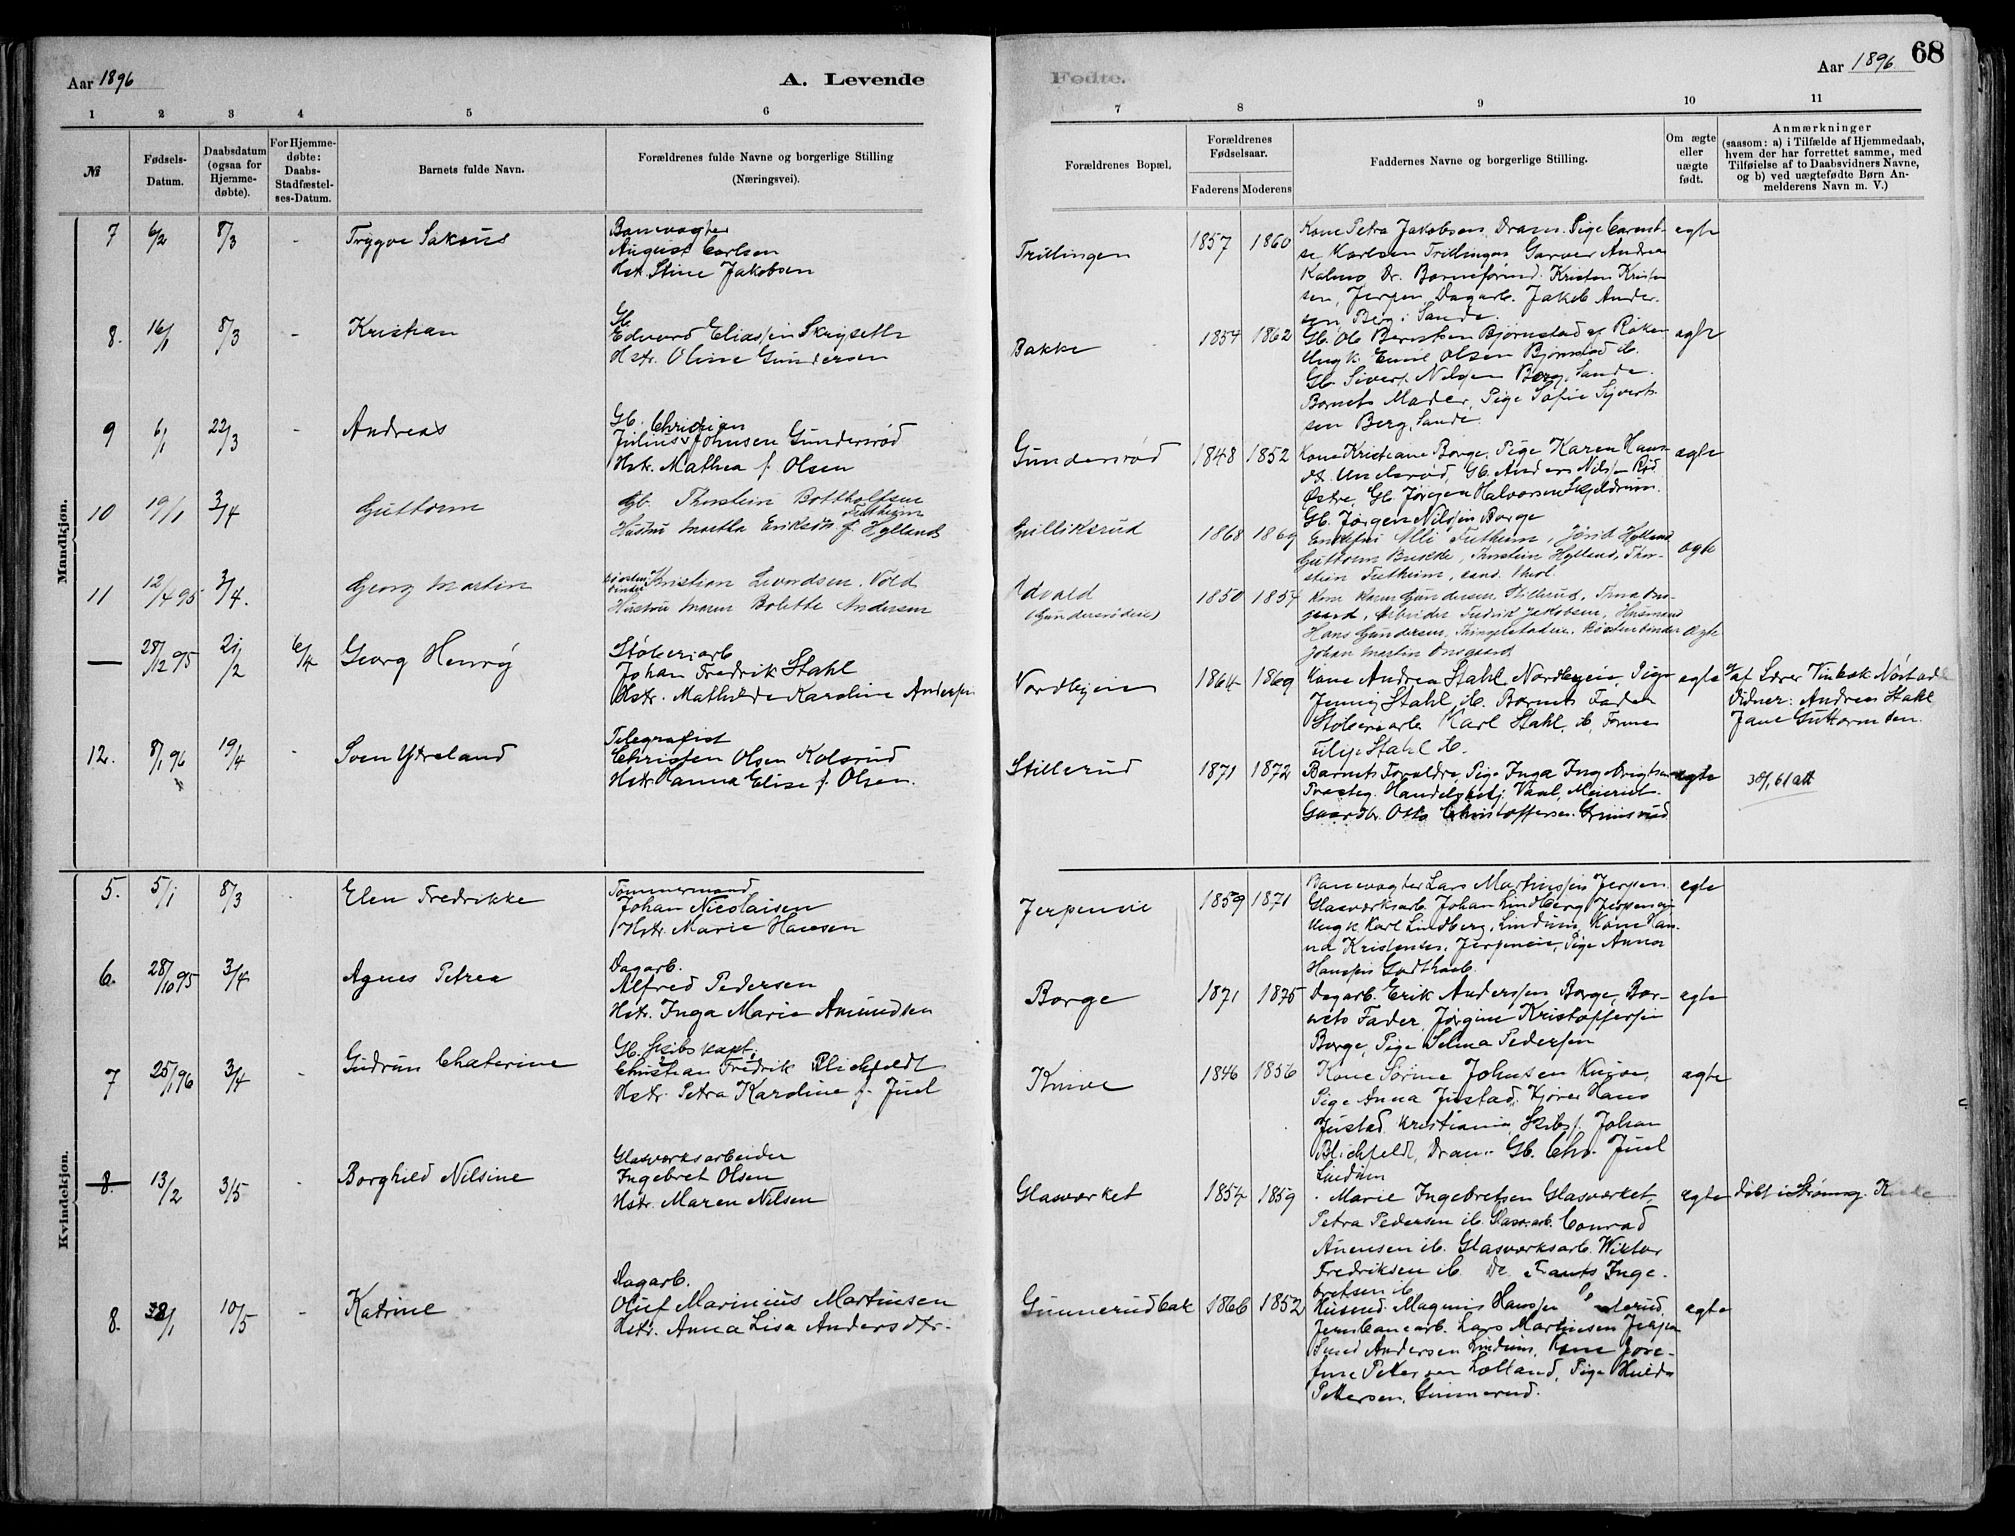 Aar 1896
A. Levende
Fødte.
Aar 1896
68
1 2 3 4 5 6 7 8 9 10 11
№
Fødsels-
Datum.
Daabsdatum
(ogsaa for
Hjemme-
døbte).
For Hjemme-
døbte:
Daabs-
Stadfæstel-
ses-Datum.
Barnets fulde Navn.
Forældrenes fulde Navne og borgerlige Stilling
(Næringsvei).
Forældrenes Bopæl,
Forældrenes
Fødselsaar.
Faderens Moderens
Faddernes Navne og Stilling.
Om ægte
eller
uægte
født.
Anmærkninger
(saasom: a) i Tilfælde af Hjemmedaab,
hvem der har forrettet samme, med
Tilføielse af to Daabsvidners Navne,
og b) ved uægtefødte Børn An-
melderens Navn m. V.)
Mandkjøn.
7 6/2 8/3 - Trygve
Banevogter
August Carlsen
Hst. Stine Jakobsen
Trillingen 1857 1860
Kone Petra Jakobsen, Dram. Pige
Karlsen Trillingen Garver Andrea
Dr. Barneforind. Kristen Kristen
sen, Jerpen, Dagarb. Jakob Ander-
sen, Berg i Sande.
egte
8. 16/1 8/3 - Kristian
Gb.
Edvard Eliassen
Hstr. Oline Gundersen
Bakke 1854 1862
Gb. Ole Berntsen Bjørnstad af Røken
Ungk. Emil Olsen Bjørnstad ib.
Gb. Sivert Nilsen Berg, Sande.
Barnets Moder, Pige Sofie Sivert-
sen Berg, Sande.
egte
9 6/1 22/3 - Andreas
Gb. Christian
Julius Johnsen Gundersrød
Hstr. Mathea f. Olsen
Gundersrød 1848 1852
Kone Kristiane Borge, Pige Karen Hans-
dt. Underrød, Gb. Anders Nilsen Rød
Østre, Gb. Jørgen Halvorsen Skjeldrum.
Gb. Jørgen Nilsen Borge
egte
10 19/1 3/4 - Guttorm
Gb. Thorstein Bottholfsen
Fretheim
Hustru Martha Eriksdtr. f. Hylland
Gulliksrud 1868 1869
Fretheim, Jørid Hylland
Guttorm Brekke, Thorstein Hylland, Thor-
stein Fretheim, cand. theol.
egte
11 12/4 95 3/4. - Georg Martin
Børsten-
binder Kristian Svendsen Vold
Hustru Maren Bolette Andersen
(Gundersrødeie) 1850 1854
Kone Karen Gundersen, Stillerud, Thea Ons-
gaard, Arbeider Fredrik Jakobsen, Husmand
Hans Gundersen, Børstenbinder
Johan Martin Onsgaard
egte
— 28/12 95 21/2 6/4 Georg Henry
Støberiarb
Johan Fredrik Stahl
Hstr. Mathilde Karoline Andersen
Nordbyeie 1864 1869
Kone Andrea Stahl Nordbyeie, Pige
Jenny Stahl, ib. Barnets Fader
Støberiarb. Karl Stahl, ib, Former
Filip Stahl ib.
egte
af Lærer
Vidner: Andrea Stahl
Jane Guttormsen.
12. 8/1 96 19/4 - Sven Ytreland
Telegrafist
Christen Olsen Kolsrud
Hstr Hanna Elise f. Olsen.
Stillerud 1871 1872
Barnets Forældre, Pige Inga Ingebrigtsen
Præsteg. Handelsbetj. Vaal, Meierist
Gaardbr. Otto Christoffersen Grimsrud
egte
Kvindekjøn.
5. 5/1 8/3 - Elen Fredrikke
Tømmermand
Johan Nicolaisen
Hstr. Marie Hansen
Jerpeneie 1859 1871
Banevogter Lars Martinsen Jerpen.
Glasværksarb. Johan Lindberg Jerpeneje
Ungk Karl Lindberg, Lindum, Kone Han-
na Kristensen, Jerpeneie, Pige Anna
Hansen Godthaab.
egte
6. 28/10 95 3/4 - Agnes Petrea
Dagarb.
Alfred Pedersen
Hstr. Inga Marie Amundsen
Borge 1871 1875
Dagarb. Erik Anderssen Borge, Bar-
nets Fader, Jørgine Kristoffersen
Borge, Pige Selma Pedersen
egte
7 25/1 96 3/4 - Gudrun Chaterine
Gb. Skibskapt.
Christian Fredrik Blichfeldt
Hstr. Petra Karoline f. Juel
Knive 1846 1856
Kone Sørine Johnsen Knive,
Pige Anna Justad, Kjører Hans
Justad, Kristiania, Skibsf. Johan
Blichfeldt, Dram. Gb. Chr. Juel
Lindum
egte
8. 13/2 3/5 - Borghild Nilsine
Glasværksarbeider
Ingebret Olsen
Hstr. Maren Nilsen
Glasværket 1854 1859
Marie Ingebretsen Glasværket,
Petra Pedersen ib. Glasv.arb. Conrad
Anensen ib. Glasværksarb. Wiktor
Fredriksen ib. Do Frants Inge-
bretsen ib
egte
døbt i Strømsg. Kirke
8. 28/1 10/5 - Katrine
Dagarb.
Oluf Marinius Martinsen
Hstr. Anna Lisa Andersdtr.
Gunnerudbak 1866 1852
Husmd. Magnus Hansen
Jernbanearb. Lars Martinsen Jerpen
Andersen Lindum, Kone Jose-
fine Pettersen Lolland, Pige Hulda
Pettersen, Gunnerud.
egte